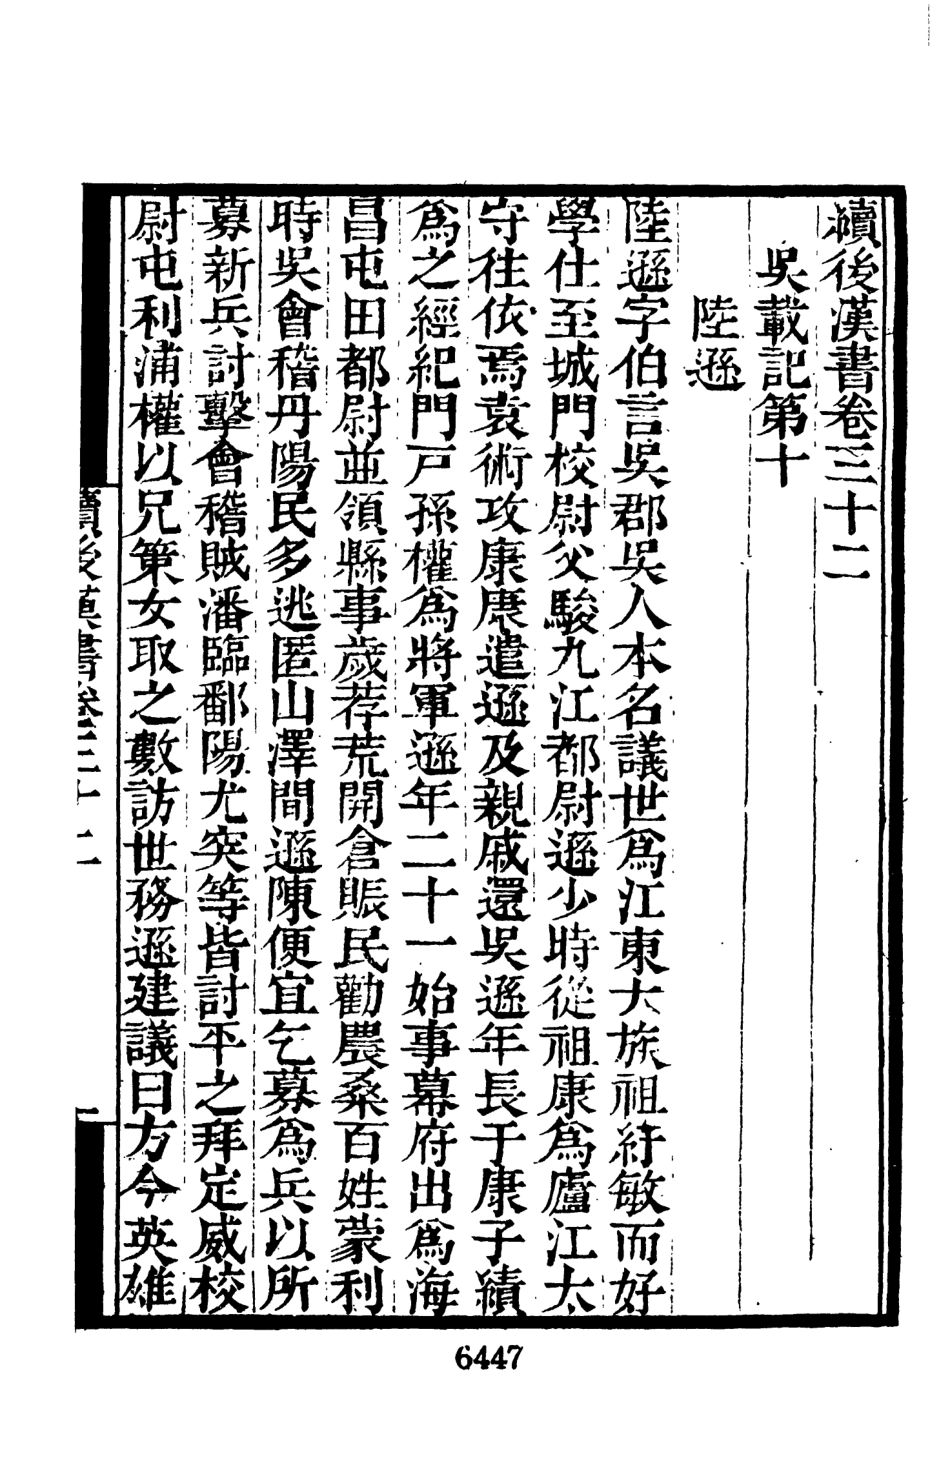 續後漢書卷三十二
吳載記第十
陸遜
陸遜字伯言吳郡吳人本名議世爲江東大族祖紆敏而好
學仕至城門校尉父駿九江都尉遜少時從祖康爲廬江太
守往依焉袁術攻康康遣遜及親戚還吳遜年長于康子績
爲之經紀門戸孫權爲將軍遜年二十一始事幕府出爲海
昌屯田都尉並領縣事歲荐荒開倉賑民勸農桑百姓蒙利
時吳會稽丹陽民多逃匿山澤間遜陳便宜乞募爲兵以所
募新兵討擊會稽賊潘臨鄱陽尤突等皆討平之拜定威校
尉屯利浦權以兄策女取之數訪世務遜建議曰方今英雄
續後漢書卷三十二
一
6447